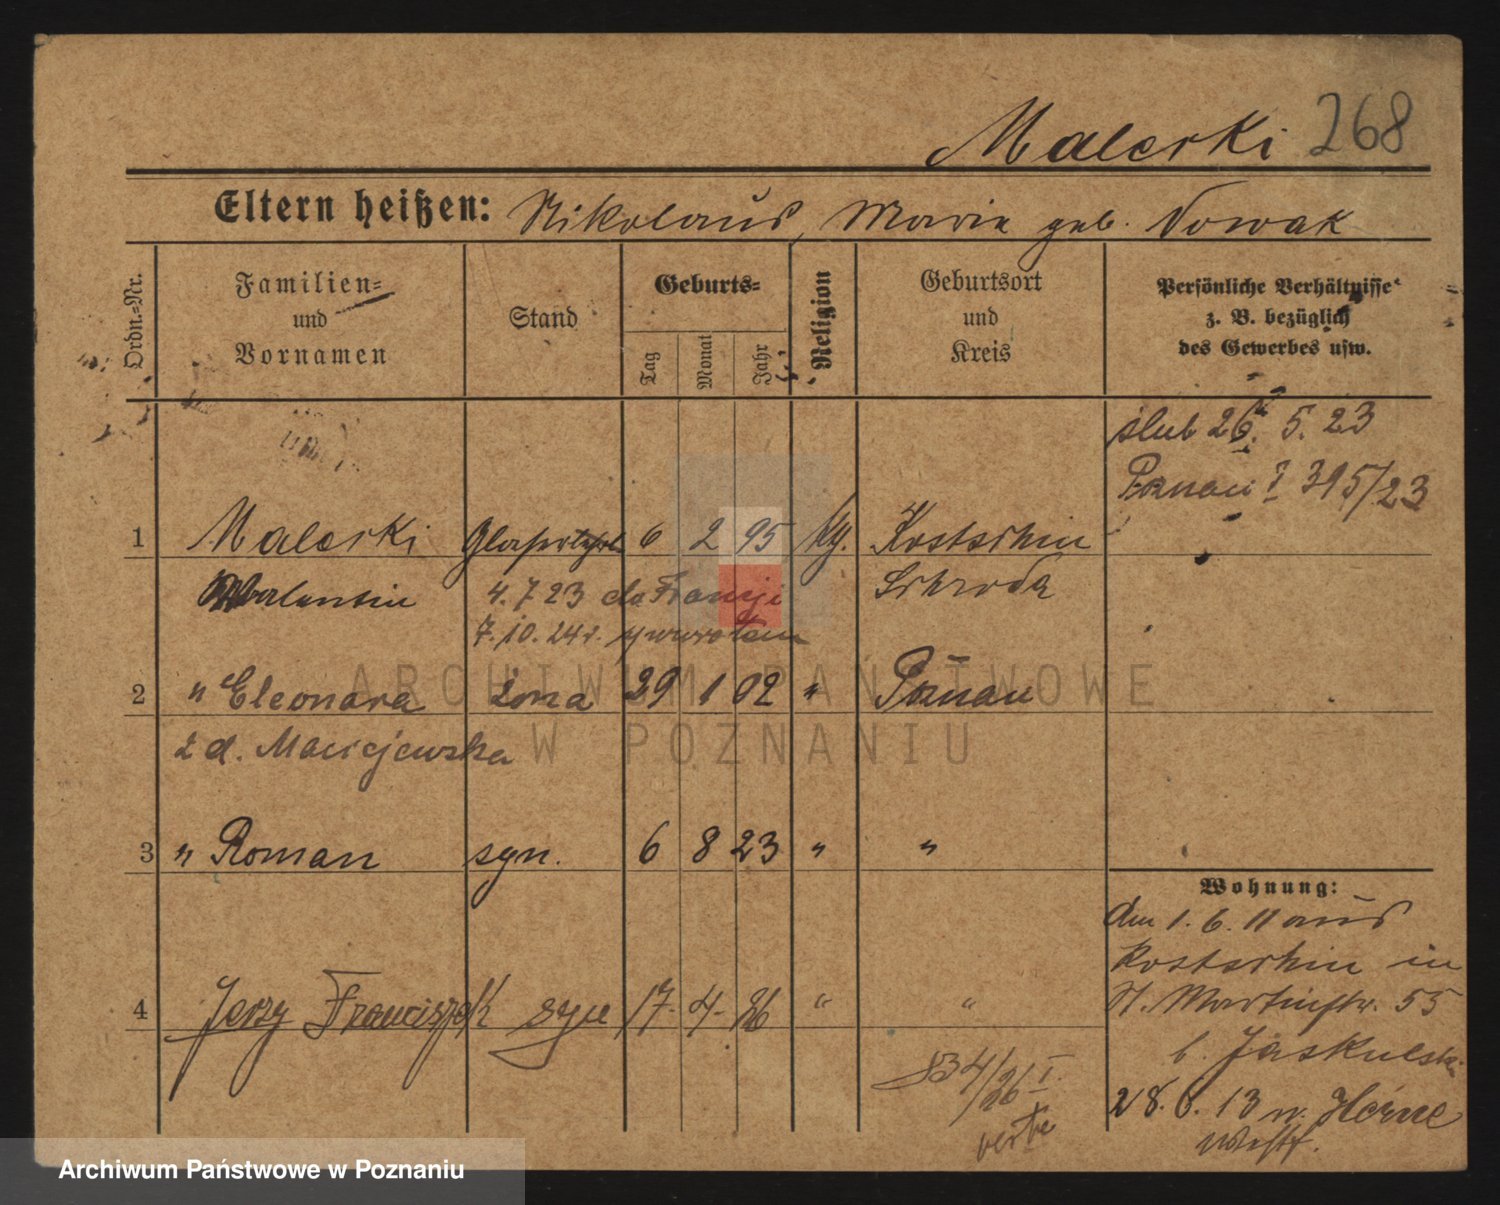 Malerki 268
Eltern heißen: Nikolaus, Marie geb. Nowak
Ordn.-Nr.
Familien- und Vornamen
Stand
Geburts-
Tag
Monat
Jahr
Religion
Geburtsort und Kreis
Persönliche Verhältnisse z. B. bezüglich des Gewerbes usw.
ślub 26. 5. 23
Poznań I 395/23
1 Malerki 6 2 95 kg. Kostschin
Valentin 4. 7 23 do Francji Schroda
7. 10. 24 r. z powrotem
2 " Eleonora żona 29 1 02 " Poznań
z d. Maciejewska
3 " Roman syn. 6 8 23 " "
4 Jerzy Franciszek syn 17. 4. 26 " "
Wohnung:
den 1. 6. 11 aus
Kostschin in
St. Martinstr. 55
b. Jaskulski
28. 8. 13 n. Herne
Westf.
4/26 I.
ARCHIWUM PAŃSTWOWE
W POZNANIU
Archiwum Państwowe w Poznaniu